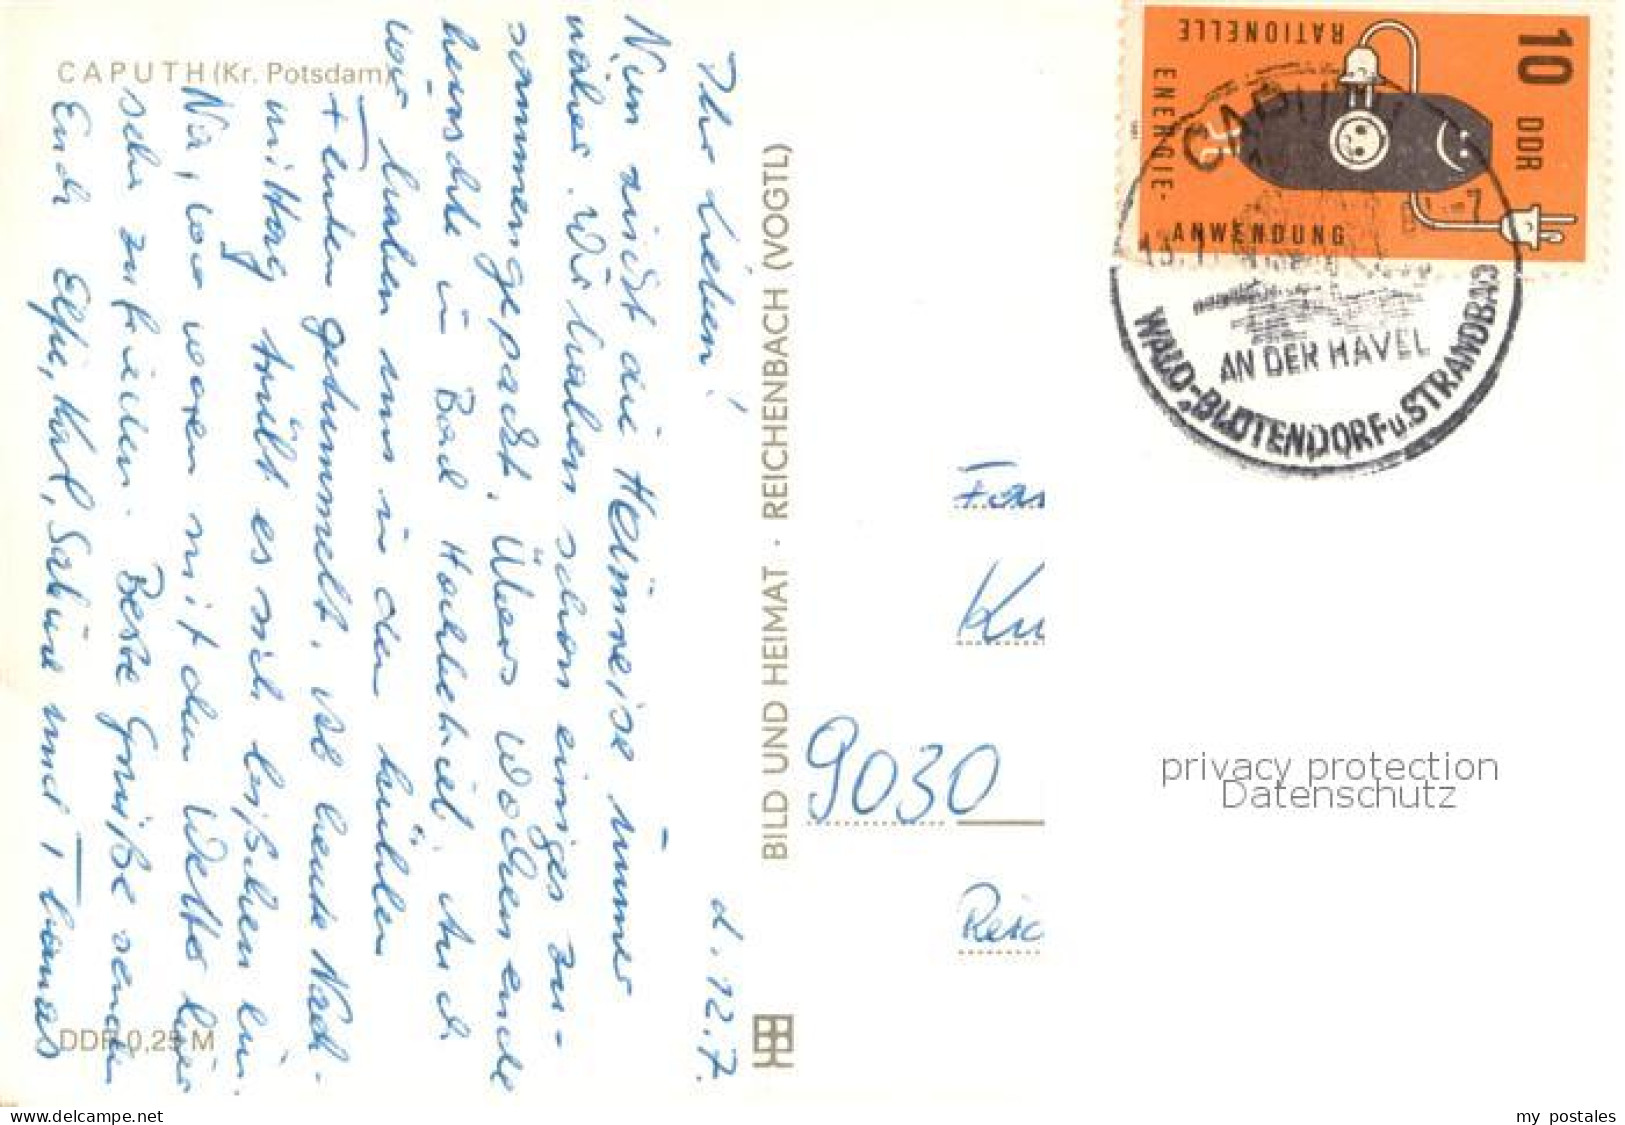 CAPUTH (Kr. Potsdam)
Ihr Lieben!
d. 12.7.
Nun rückt die Heimreise immer
näher. Wir haben schon einiges zu-
sammengepackt. Übers Wochenende
herrschte in Bad Hochbetrieb. Auch
wir haben uns in den kühlen
Fluten getummelt. Ab heute Nach-
mittag trübt es sich bißchen ein.
Na, wir waren mit dem Wetter hier
sehr zufrieden. Beste Grüße senden
Euch Elfie, Karl, Sabine und Thomas
DDR 0,25 M
BILD UND HEIMAT · REICHENBACH (VOGTL)
10 DDR
RATIONELLE
ENERGIE-
ANWENDUNG
CAPUTH
13.7
AN DER HAVEL
WALD-BLÜTENDORF u. STRANDBAD
Fam
Ku
9030
Reic
privacy protection
Datenschutz
www.delcampe.net
my_postales